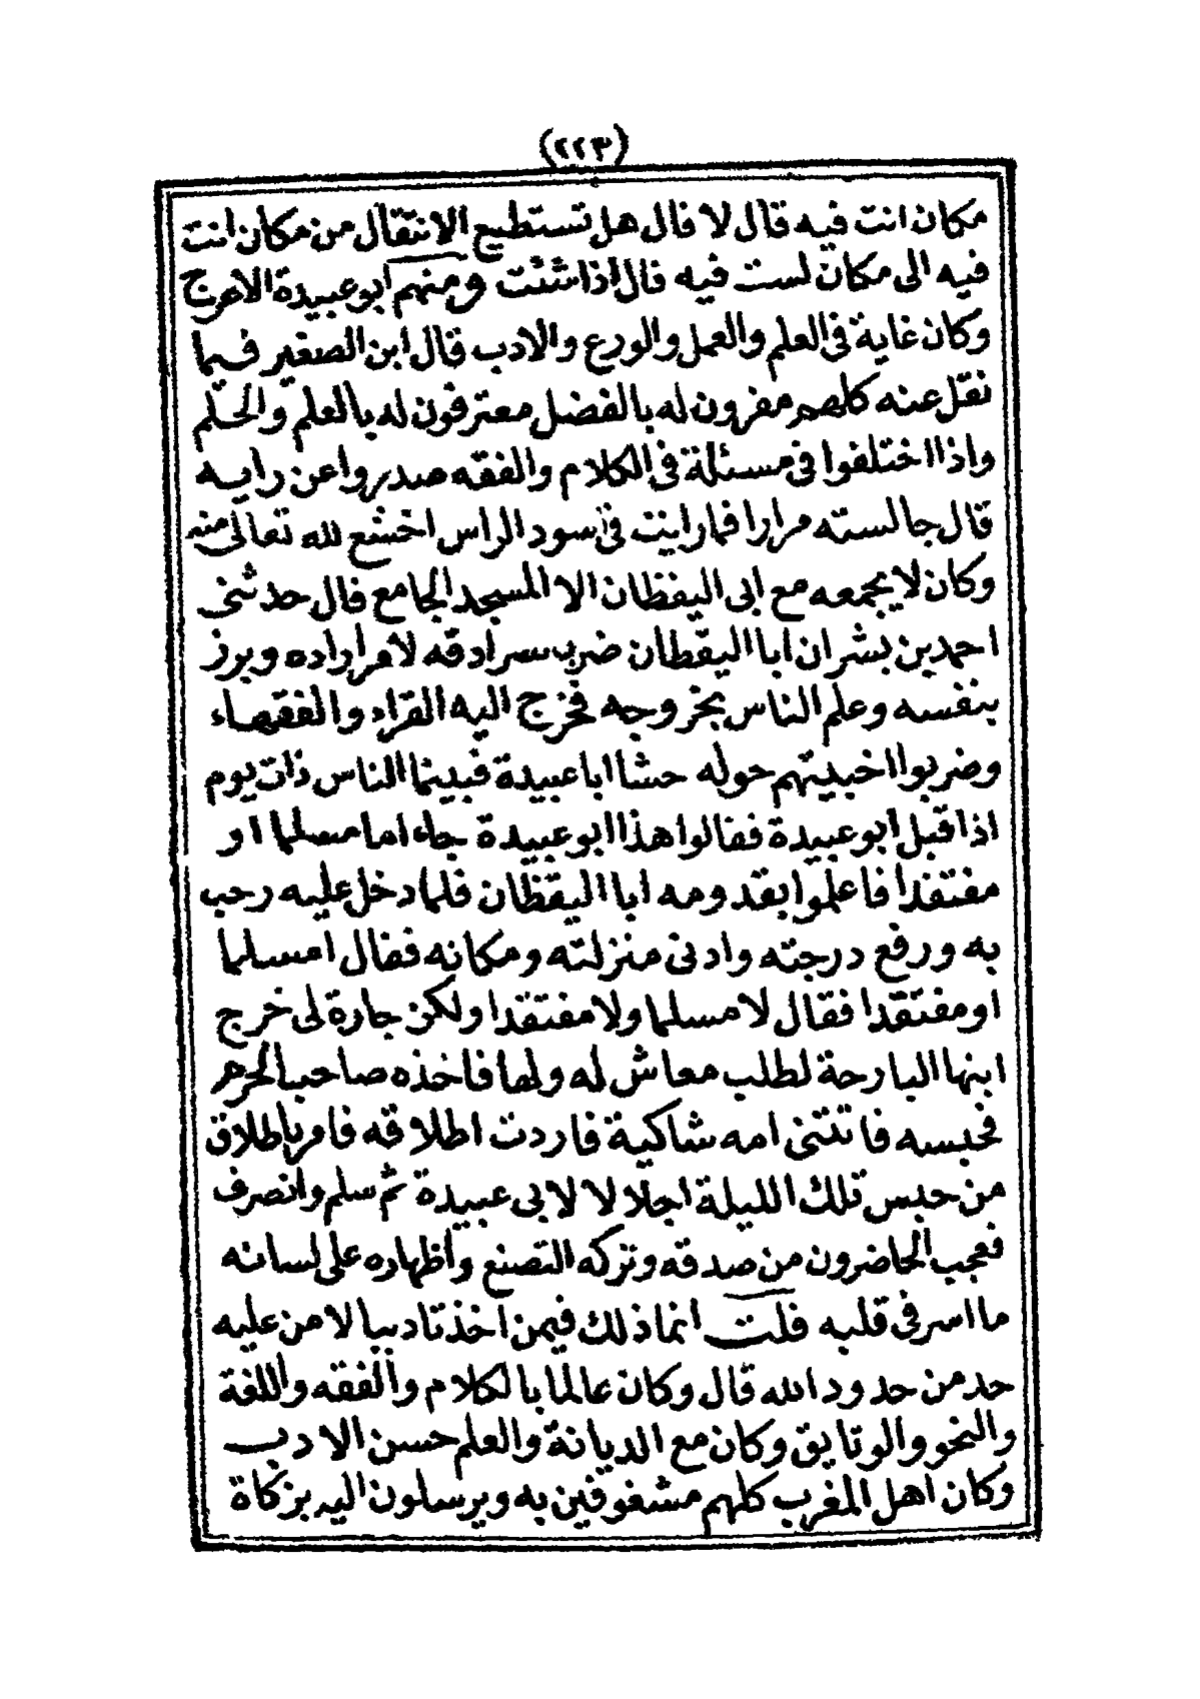 (٢٢٣)
مكان انت فيه قال لا قال هل تستطيع الانتقال من مكان انت
فيه الى مكان لست فيه قال اذا شئت ومنهم ابو عبيدة الاعرج
وكان غاية فى العلم والعمل والورع والادب قال ابن الصغير فيما
نقل عنه كلهم مقرون له بالفضل معترفون له بالعلم والحلم
واذا اختلفوا فى مسئلة فى الكلام والفقه صدروا عن رايه
قال جالسته مرارا فما رايت فى سود الراس اخشع لله تعالى منه
وكان لا يجمعه مع ابى اليقظان الا المسجد الجامع قال حدثنى
احمد بن بشر ان ابا اليقطان ضرب سرادقه لامر اراده وبرز
بنفسه وعلم الناس بخروجه فخرج اليه القراء والفقهاء
وضربوا اخبيتهم حوله حشا ابا عبيدة فبينما الناس ذات يوم
اذ اقبل ابو عبيدة فقالوا هذا ابو عبيدة جاء اما مسلما او
مفتقدا فاعلموا بقدومه ابا اليقظان فلما دخل عليه رحب
به ورفع درجته وادنى منزلته ومكانه فقال امسلما
او مفتقدا فقال لا مسلما ولا مفتقدا ولكن جارة لى خرج
ابنها البارحة لطلب معاش له ولها فاخذه صاحب الحرس
فحبسه فاتتنى امه شاكية فاردت اطلاقه فامر باطلاق
من حبس تلك الليلة اجلالا لابى عبيدة ثم سلم وانصرف
فعجب الحاضرون من صدقه وتركه التصنع واظهاره على لسانه
ما اسر فى قلبه قلت انما ذلك فيمن اخذ تاديبا لا من عليه
حد من حدود الله قال وكان عالما بالكلام والفقه واللغة
والنحو والوثايق وكان مع الديانة والعلم حسن الادب
وكان اهل المغرب كلهم مشغوفين به ويرسلون اليه بزكاة